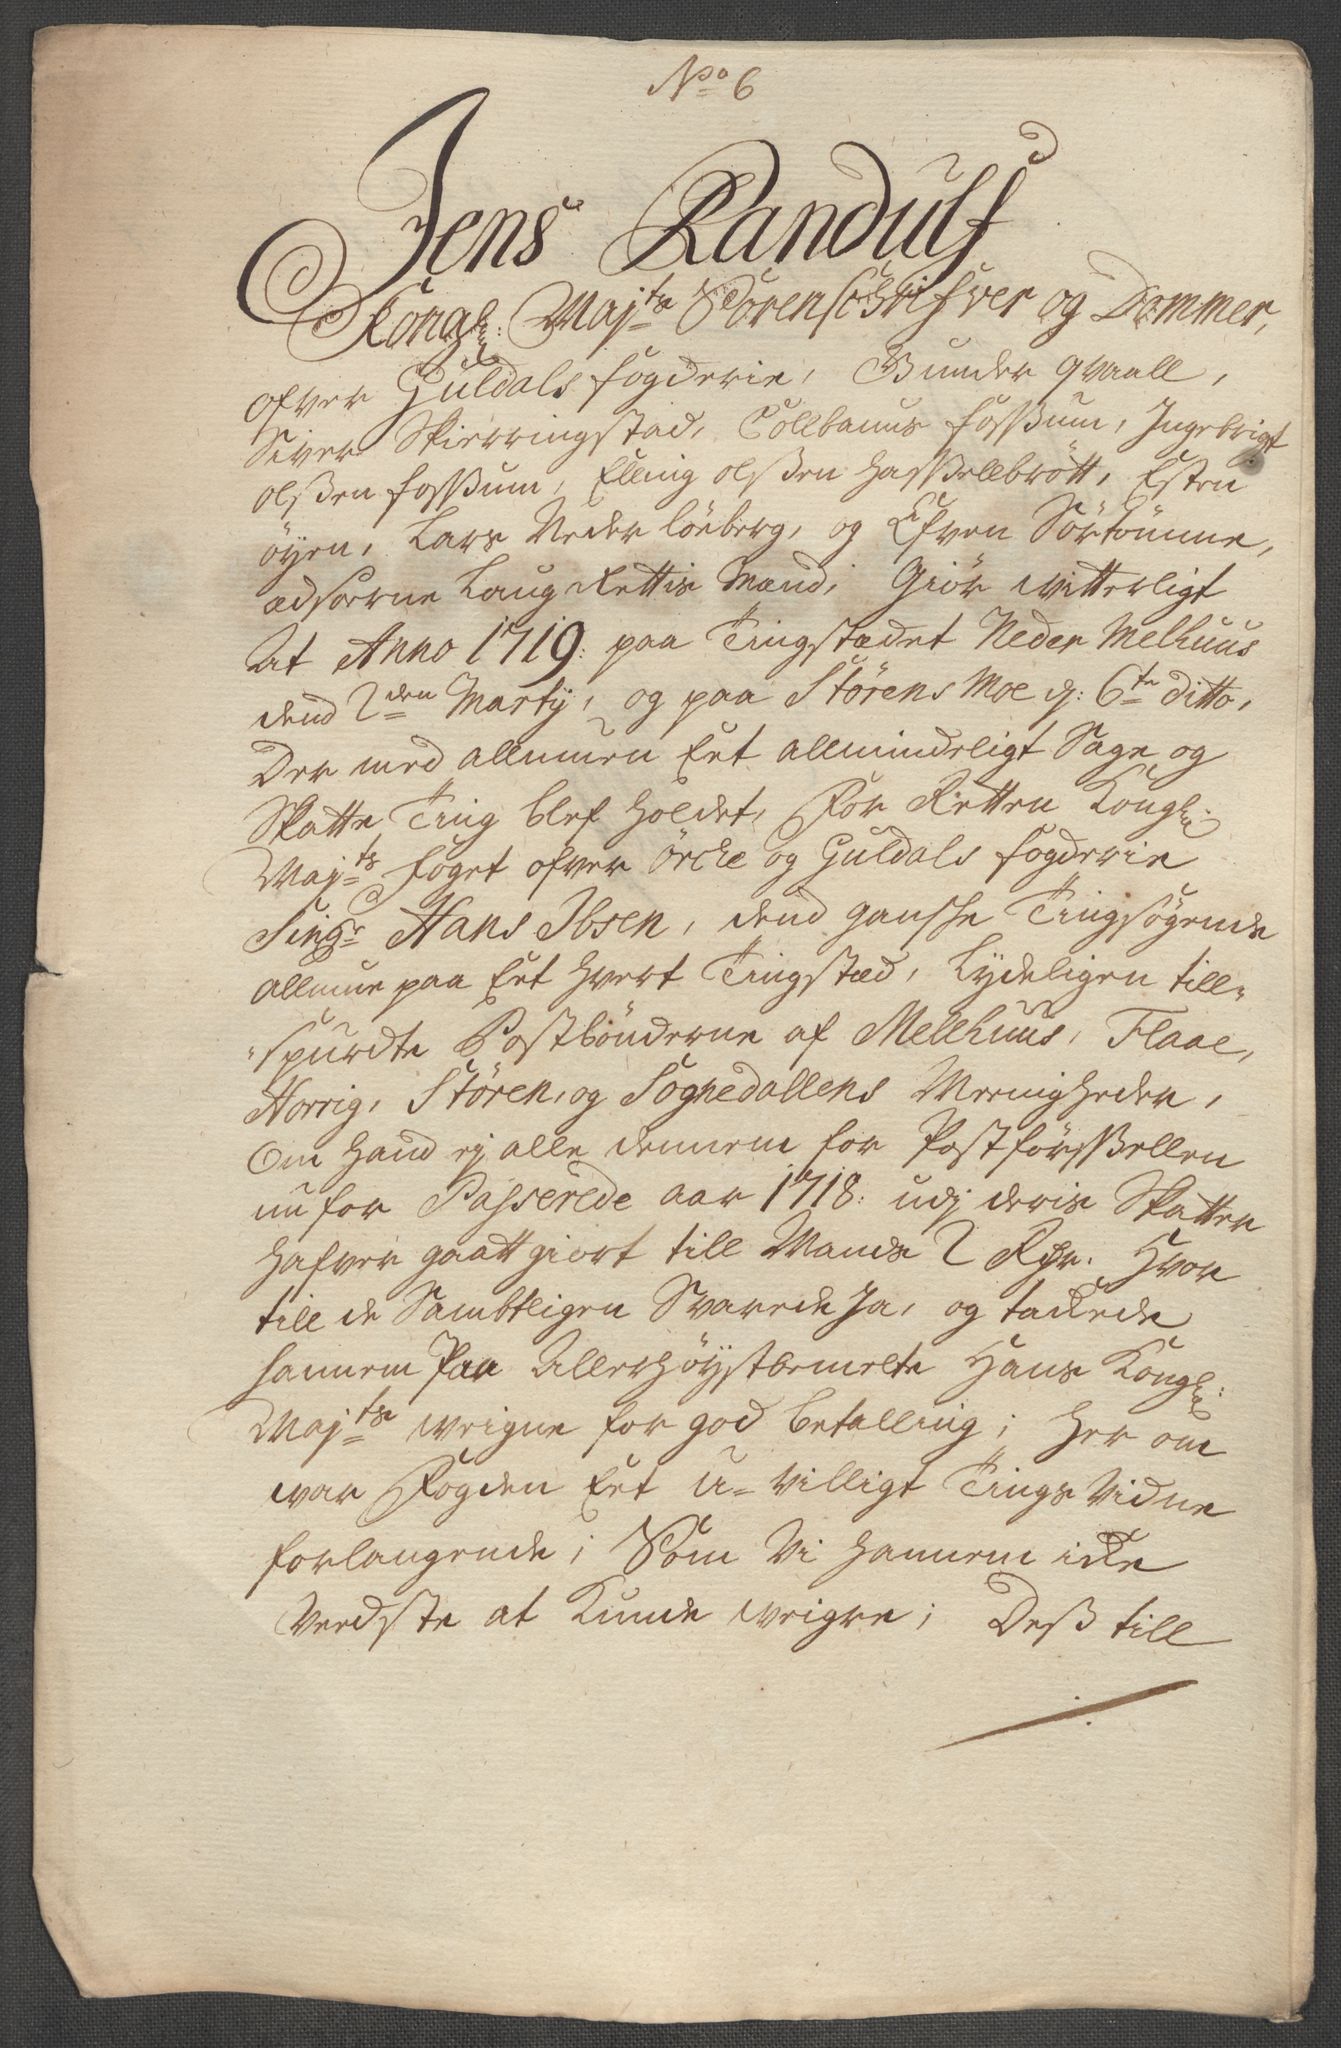 No 6
Jens Randulf
Kongl: Majts Sorenschrifver og Dommer,
ofver Guldals fogderie, Gunder qvaall,
Siver Skierringstad, Tollbanus fossum, Ingebrigt
olsen fossum, Elling olsen hassellbrött, Esten
öyen, Lars Neder löeberg, og Efven Sörtömme,
edsorne Laug Rettis Mænd, Giör witterligt
At Anno 1719: paa Tingstædet Neder Melhuus
dend 2den Martij, og paa Störens Moe d: 6te ditto,
Der med allmuen Eet allmindeligt Sage og
Skatte Ting blef holdet, For Retten Kongl:
Majts foget ofver Örche og Guldals fogderie
Singr Hans Ibsen, dend gansche Tingsögende
allmue paa Eet hvert Tingstæd, Lydeligen till-
spurdte Postbönderne af Mellhuus, Flaae,
Horrig, Stören, og Sognedallens Meenigheder,
Om hand ej alle dennem for Postförsellen
nu for Passerede aar 1718: udj deris Skatter
hafver gaatt giort till Mands 2 Rdr. Hvor
till de Sambtligen Svarede Ja, og tackede
hannem Paa Allerhöystbemelte Hans Kongl:
Majts weigne for god betalling; her om
war Fogden Eet u-villigt Tings Vidne
forlangende; Som Vi hannem icke
Veedste at Kunde weigre; Dess till